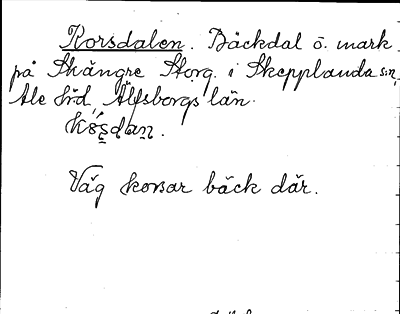 Korsdalen. Bäckdal ö. mark
på Skångre Storg. i Skepplanda sn,
Ale hd, Älfsborgs län.
Väg korsar bäck där.